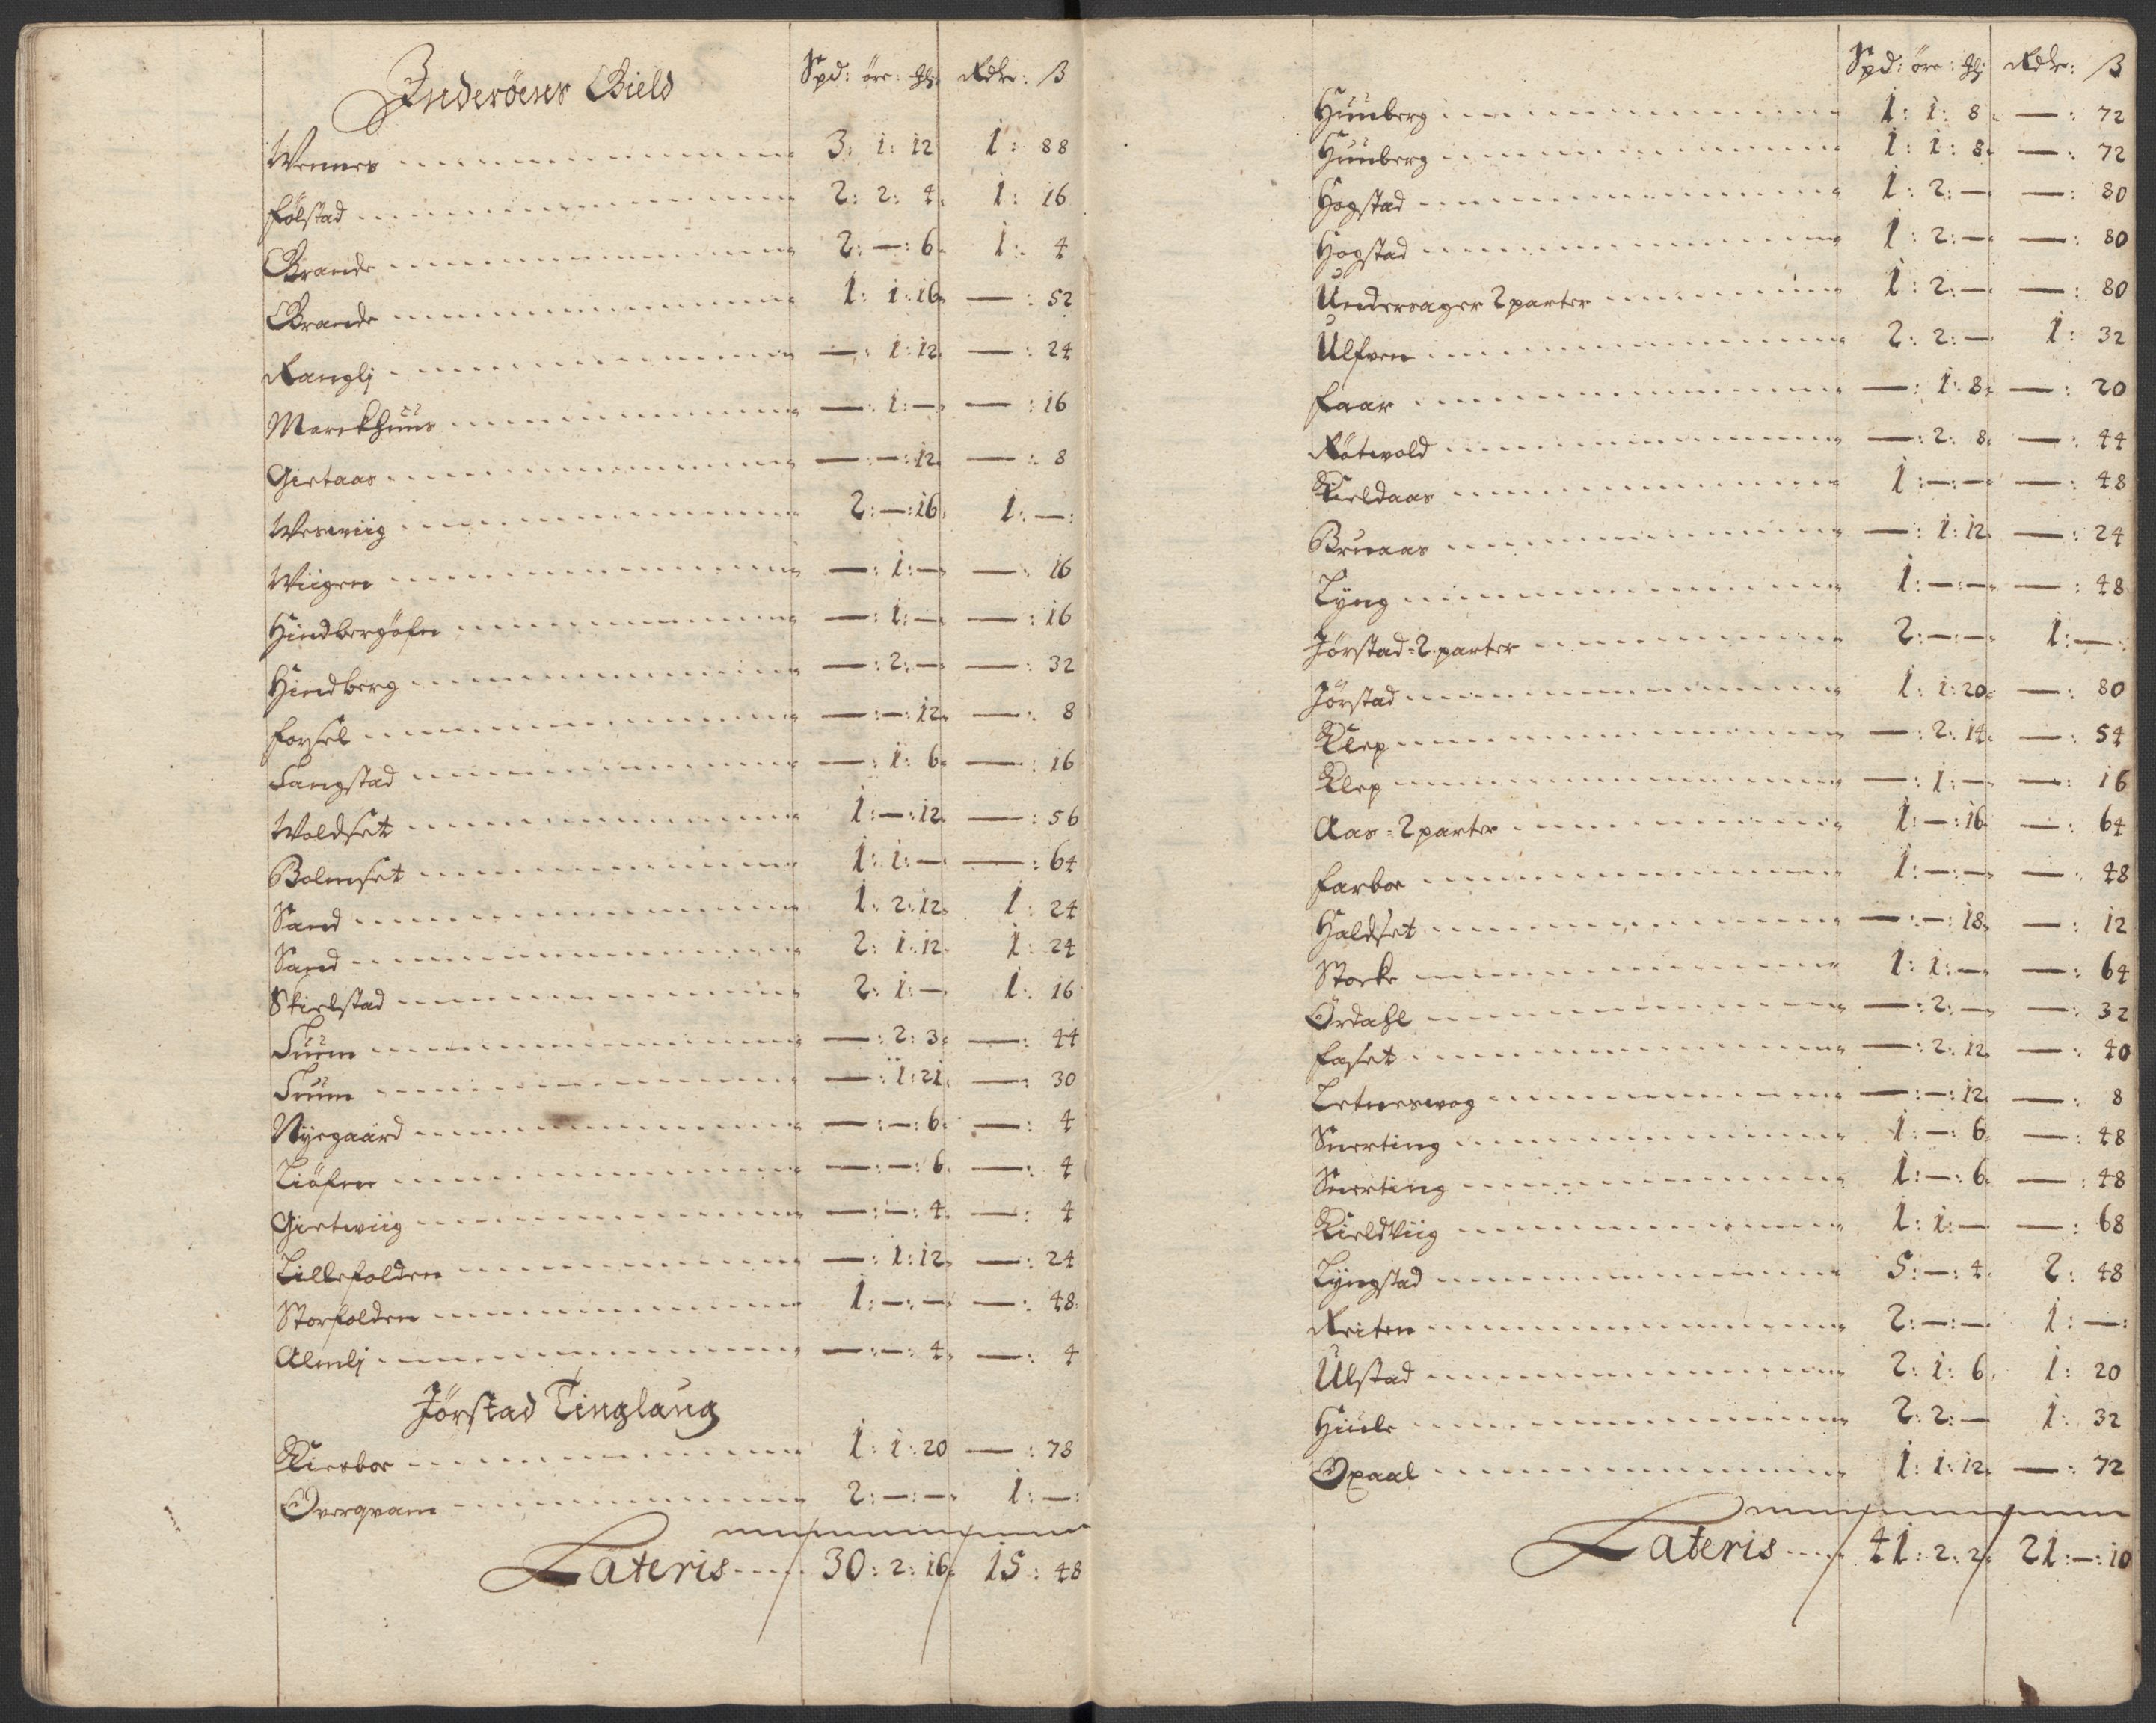 Inderöens Gield Spd: öre: ℔ Rdlr: ß
Wennes 3: 1: 12 1: 88
Følstad 2: 2: 4: 1: 16
Grande 2: —: 6: 1: 4
Grande 1: 1: 16 —: 52
Ranglj —: 1: 12 —: 24
Marckhuus —: 1: — —: 16
Gietaas —: —: 12 —: 8
Weswiig 2: —: 16 1: —:
Wiigen —: 1: — —: 16
Hindbergöfn —: 1: — —: 16
Hindberg —: 2: — —: 32
Forsel —: —: 12 —: 8
Langstad —: 1: 6 —: 16
Woldset 1: —: 12 —: 56
Bolmset 1: 1: — —: 64
Sand 1: 2: 12 1: 24
Sand 2: 1: 12 1: 24
Skielstad 2: 1: — 1: 16
Tuum —: 2: 3 —: 44
Tuum —: 1: 21 —: 30
Nyegaard —: —: 6 —: 4
Liöfen —: —: 6 —: 4
Gietwiig —: —: 4 —: 4
Lillefolden —: 1: 12 —: 24
Storfolden 1: —: — —: 48
Almlj —: —: 4 —: 4
Jörstad Tinglaug
Kiesboe 1: 1: 20 —: 78
Overqvam 2: —: — 1: —:
Lateris 30: 2: 16 15: 48
Spd: öre: ℔ Rdlr: ß
Huuberg 1: 1: 8 —: 72
Huuberg 1: 1: 8 —: 72
Hogstad 1: 2: — —: 80
Hogstad 1: 2: — —: 80
Undersager 2 parter 1: 2: — —: 80
Ulfven 2: 2: — 1: 32
Faar —: 1: 8 —: 20
Rötwold —: 2: 8 —: 44
Kieldaas 1: —: — —: 48
Bruaas —: 1: 12 —: 24
Lÿng 1: —: — —: 48
Jörstad 2 parter 2: —: — 1: —:
Jörstad 1: 1: 20 —: 80
Klep —: 2: 14 —: 54
Klep —: 1: — —: 16
Aas 2 parter 1: —: 16 —: 64
Farboe 1: —: — —: 48
Haldset —: —: 18 —: 12
Storke 1: 1: — —: 64
Ördahl —: 2: — —: 32
Faset —: 2: 12 —: 40
Letneswog —: —: 12 —: 8
Snerting 1: —: 6 —: 48
Snerting 1: —: 6 —: 48
Kieldviig 1: 1: — —: 68
Lÿngstad 5: —: 4 2: 48
Reiten 2: —: — 1: —:
Ulstad 2: 1: 6 1: 20
Huule 2: 2: — 1: 32
Opaal 1: 1: 12 —: 72
Lateris 41: 2: 2 21: —: 10